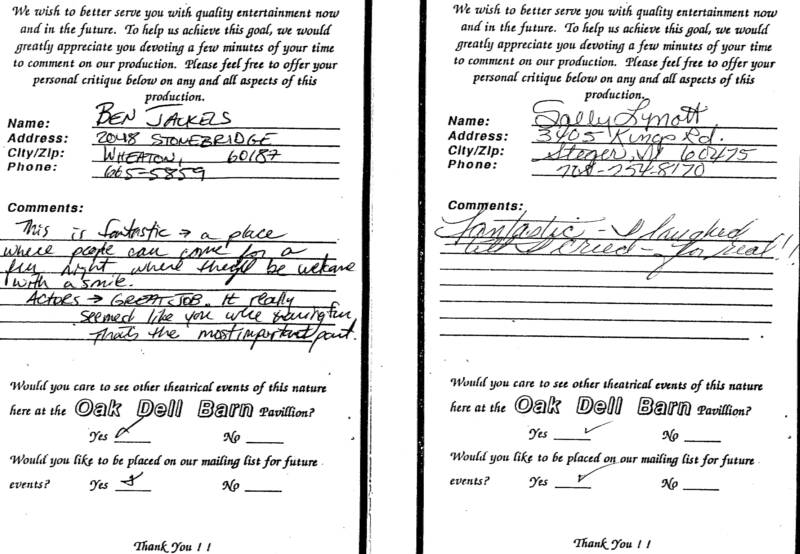 We wish to better serve you with quality entertainment now
and in the future. To help us achieve this goal, we would
greatly appreciate you devoting a few minutes of your time
to comment on our production. Please feel free to offer your
personal critique below on any and all aspects of this
production.
Name: BEN JACKELS
Address: 2048 STONEBRIDGE
City/Zip: WHEATON, 60187
Phone: 665-5859
Comments:
This is fantastic → a place
where people can come for a
fun night where they'll be welcome
with a smile.
Actors → GREAT JOB. It really
seemed like you were having fun,
that's the most important part.
Would you care to see other theatrical events of this nature
here at the Oak Dell Barn Pavillion?
Yes No
Would you like to be placed on our mailing list for future
events? Yes No
Thank You ! !
We wish to better serve you with quality entertainment now
and in the future. To help us achieve this goal, we would
greatly appreciate you devoting a few minutes of your time
to comment on our production. Please feel free to offer your
personal critique below on any and all aspects of this
production.
Name: Sally Lynott
Address: 3405 Kings Rd.
City/Zip: Steger, Il 60475
Phone: 708-754-8170
Comments:
Fantastic - I laughed
till I cried - for real!!
Would you care to see other theatrical events of this nature
here at the Oak Dell Barn Pavillion?
Yes No
Would you like to be placed on our mailing list for future
events? Yes No
Thank You ! !